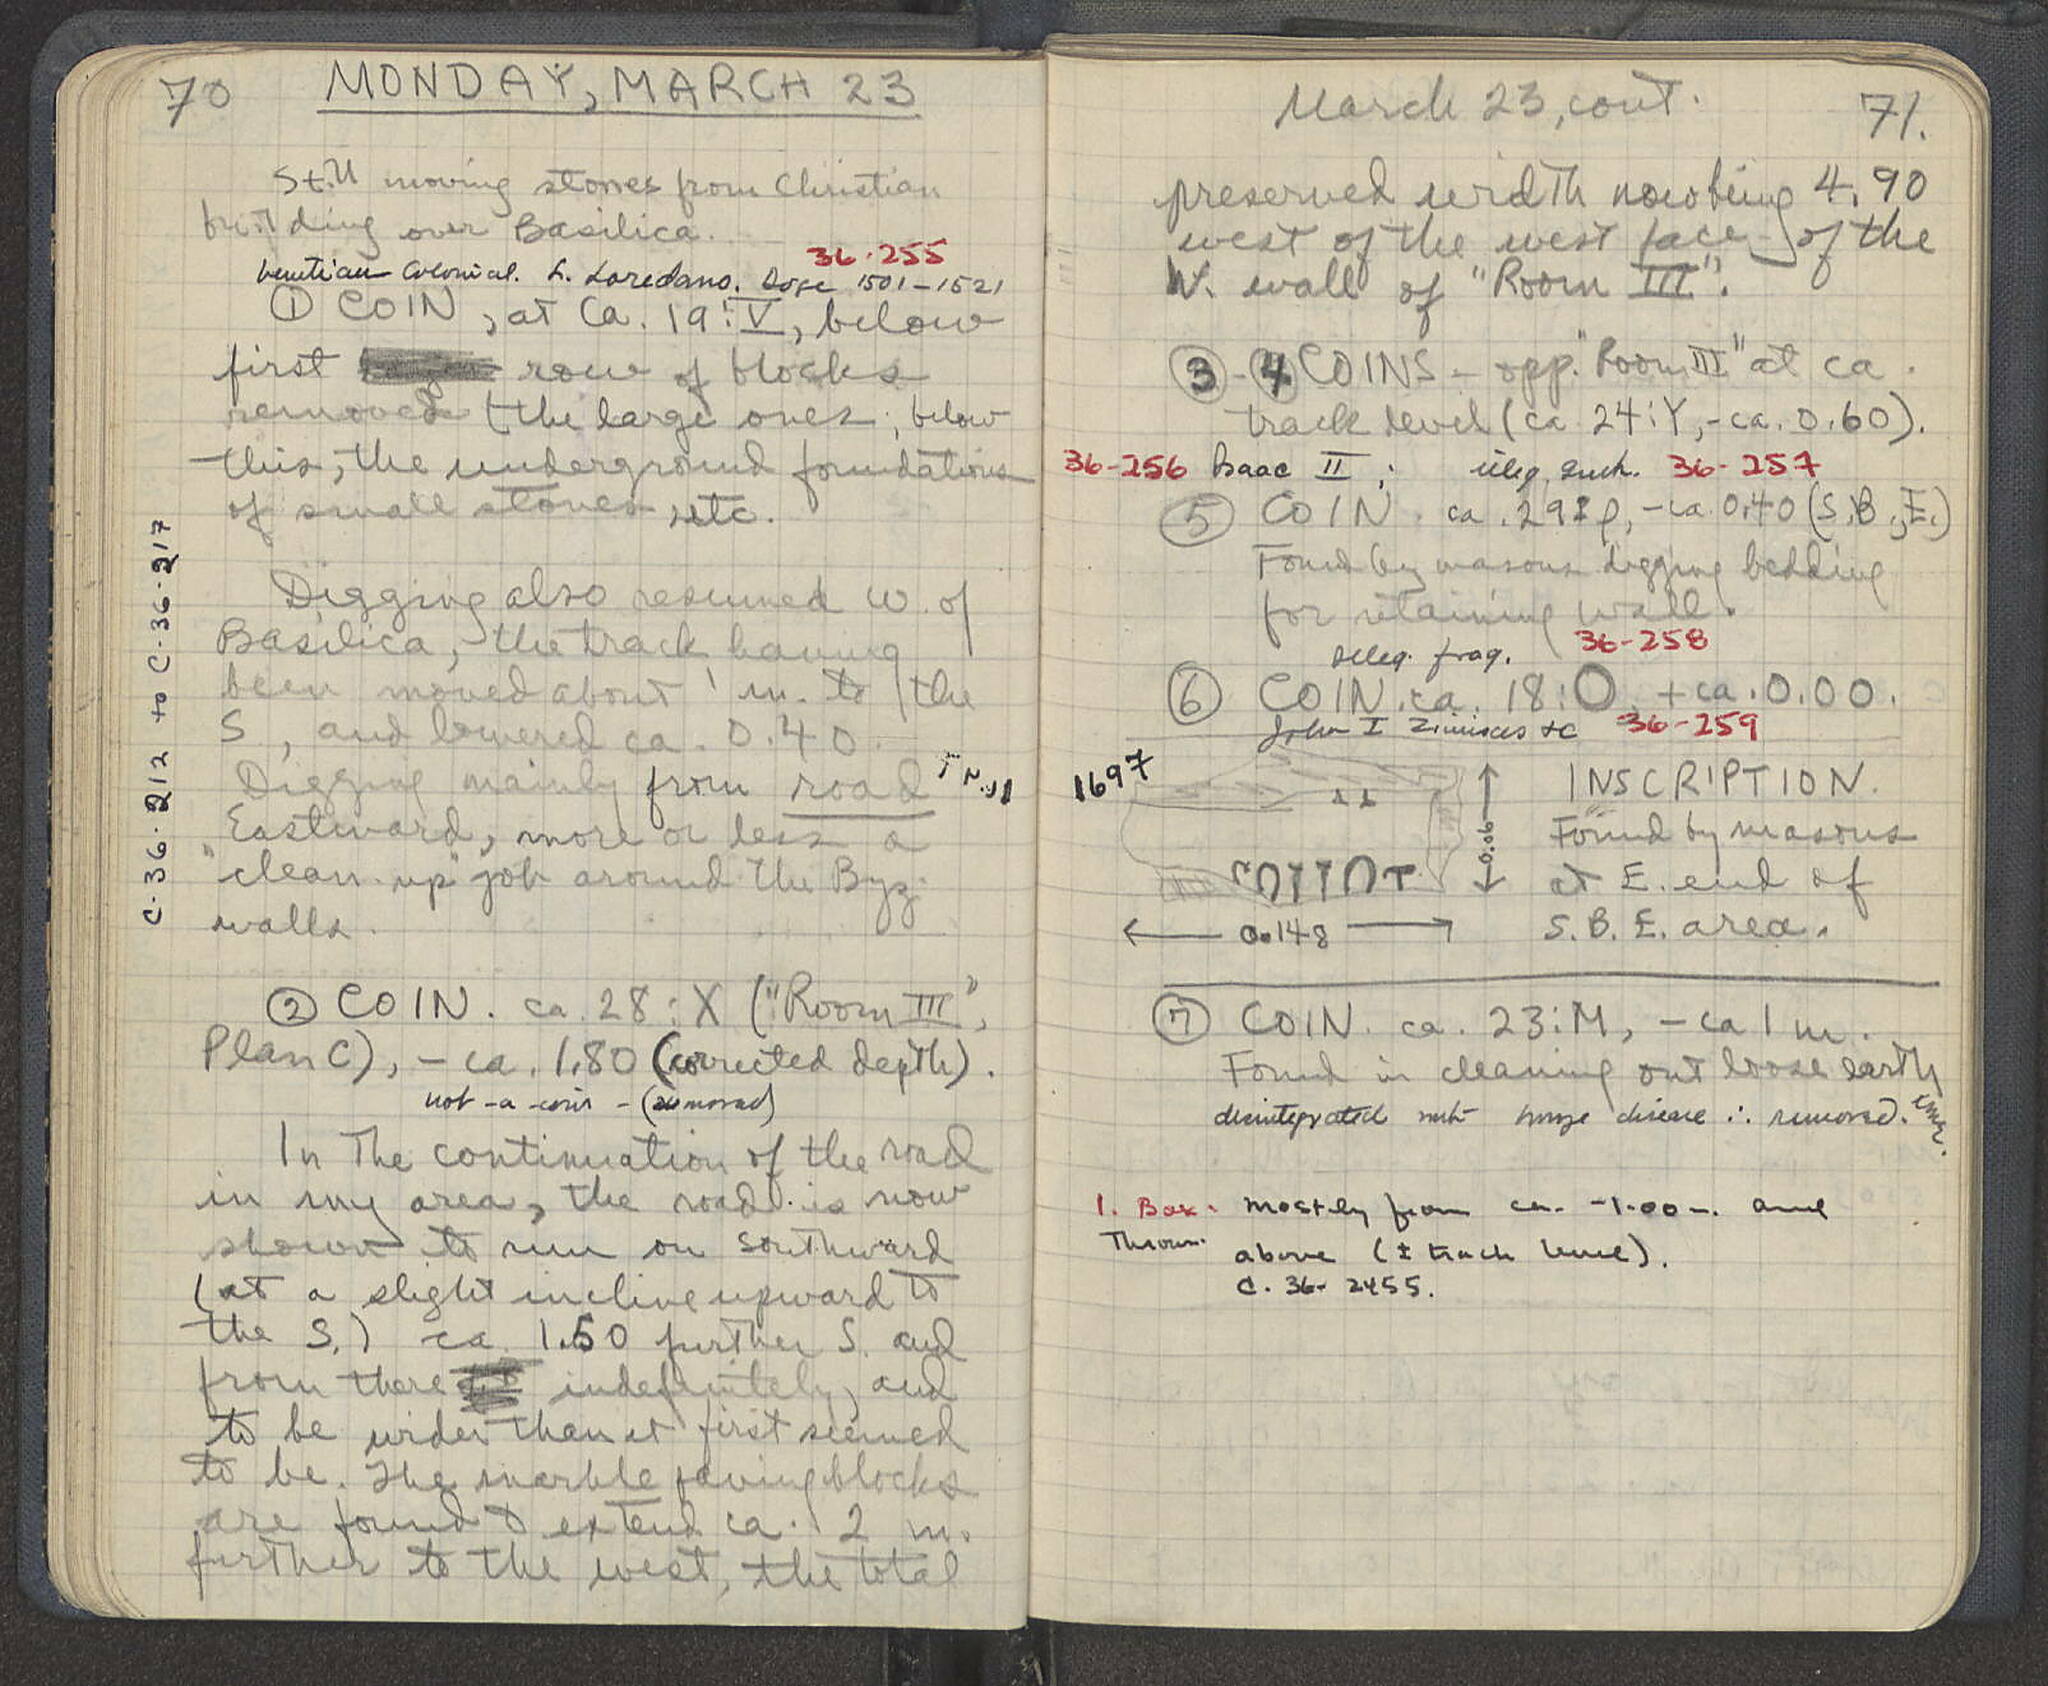 70
MONDAY, MARCH 23
Still moving stones from Christian
building over Basilica.
36-255
Venetian Colonial. L. Loredano. Doge 1501-1521
① COIN, at Ca. 19:V, below
first row of blocks
removed (the large ones; below
this, the underground foundations
of small stones, etc.
Digging also resumed W. of
Basilica, the track having
been moved about 1 m. to the
S, and lowered ca. 0.40.
Digging mainly from road
Eastward, more or less a
"clean-up" job around the Byz.
walls.
C-36-212 to C-36-217
② COIN. ca. 28:X ("Room III",
Plan C), - ca. 1.80 (corrected depth).
not-a-coin-(removed)
In the continuation of the road
in my area, the road is now
shown to run on southward
(at a slight incline upward to
the S.) ca 1.50 further S. and
from there indefinitely, and
to be wider than it first seemed
to be. The marble paving blocks
are found to extend ca. 2 m.
further to the west, the total
March 23, cont.
71.
preserved width now being 4.90
west of the west face of the
W. wall of "Room III".
③-④ COINS - opp. "Room III" at ca.
track level (ca 24:Y, -ca. 0.60).
36-256 Isaac II; illeg. 36-257
⑤ COIN. ca. 29:P, -ca. 0.40 (S.B.E.)
Found by masons digging bedding
for retaining wall.
illeg. frag. 36-258
⑥ COIN. ca. 18:O, +ca. 0.00.
John I Zimisces 36-259
1697
0.06
0.148
INSCRIPTION.
Found by masons
at E. end of
S.B.E. area.
⑦ COIN. ca. 23:M, -ca 1 m.
Found in cleaning out loose earth
disintegrated with bronze disease ∴ removed.
1. Box. mostly from ca. -1.00 m. and
Thrown. above (± track level).
C. 36- 2455.